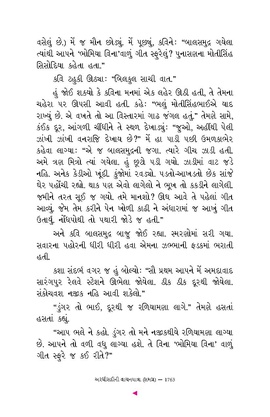 વસેલું છે.) મેં જ મૌન છોડ્યું. મેં પૂછ્યું, કવિને: “બાલસમુદ્ર ગયેલા
ત્યાંથી આપને ‘ભોમિયા વિના’વાળું ગીત સ્ફુરેલું? પુનાસણના મોતીસિંહ
સિસોદિયા કહેતા હતા.”
કવિ ટહુકી ઊઠ્યા: “બિલકુલ સાચી વાત.”
હું જોઈ શક્યો કે કવિના મનમાં એક લહેર ઊઠી હતી, તે તેમના
ચહેરા પર ઊપસી આવી હતી. કહે: “ભલું મોતીસિંહભાઈએ યાદ
રાખ્યું છે. એ વખતે તો આ વિસ્તારમાં ગાઢ જંગલ હતું.” તેમણે સામે,
કંઈક દૂર, આંગળી ચીંધીને તે સ્થળ દેખાડ્યું: “જુઓ, અહીંથી પેલી
ઝાંખી ઝાંખી વનરાજિ દેખાય છે?” મેં હા પાડી પછી ઉમળકાભેર
કહેવા લાગ્યા: “એ જ બાલસમુદ્રની જગા. ત્યારે ગીચ ઝાડી હતી.
અમે ત્રણ મિત્રો ત્યાં ગયેલા. હું છૂટો પડી ગયો. ઝાડીમાં વાટ જડે
નહિ. અનેક કેડીઓ ખૂંદી, કુંજોમાં રવડ્યો. પડતો-આખડતો છેક સાંજે
ઘેર પહોંચી રહ્યો. થાક પણ એવો લાગેલો ને ભૂખ તો કકડીને લાગેલી.
જમીને તરત સૂઈ જ ગયો. તમે માનશો? ઊંઘ આવે તે પહેલાં ગીત
આવ્યું. જેમ તેમ કરીને પેન ખોળી કાઢી ને અંધારામાં જ આખું ગીત
ઉતાર્યું. નોંધપોથી તો પથારી જોડે જ હતી.”
અને કવિ બાલસમુદ્ર બાજુ જોઈ રહ્યા. સ્મરણોમાં સરી ગયા.
સવારના પહોરની ધીરી ધીરી હવા એમના ઝભ્ભાની ફડકમાં ભરાતી
હતી.
કશા સંદર્ભ વગર જ હું બોલ્યો: “સૌ પ્રથમ આપને મેં અમદાવાદ
સારંગપુર રેલવે સ્ટેશને ઊભેલા જોયેલા. ઠીક ઠીક દૂરથી જોયેલા.
સંકોચવશ નજીક નહિ આવી શકેલો.”
“ડુંગર તો ભાઈ, દૂરથી જ રળિયામણા લાગે.” તેમણે હસતાં
હસતાં કહ્યું.
“આપ ભલે ને કહો. ડુંગર તો મને નજીકથીયે રળિયામણા લાગ્યા
છે. આપને તો વળી વધુ લાગ્યા હશે. તે વિના ‘ભોમિયા વિના’ વાળું
ગીત સ્ફુરે જ કઈ રીતે?”